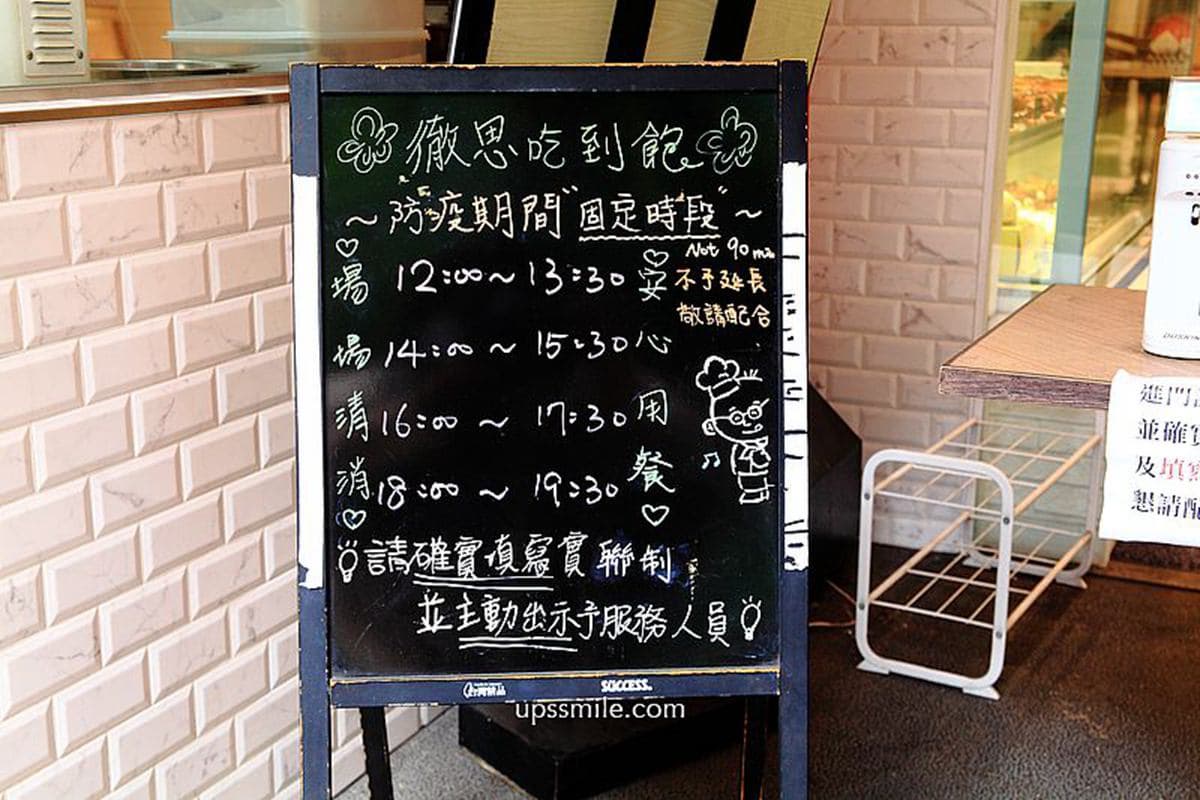 徹思吃到飽
~防疫期間"固定時段"~
Not 90 min
不予延長
敬請配合
場 12:00~13:30 安
場 14:00~15:30 心
清 16:00~17:30 用
消 18:00~19:30 餐
請確實填寫實聯制
並主動出示予服務人員
SUCCESS.
upssmile.com
進門
並確實
及填寫
懇請配